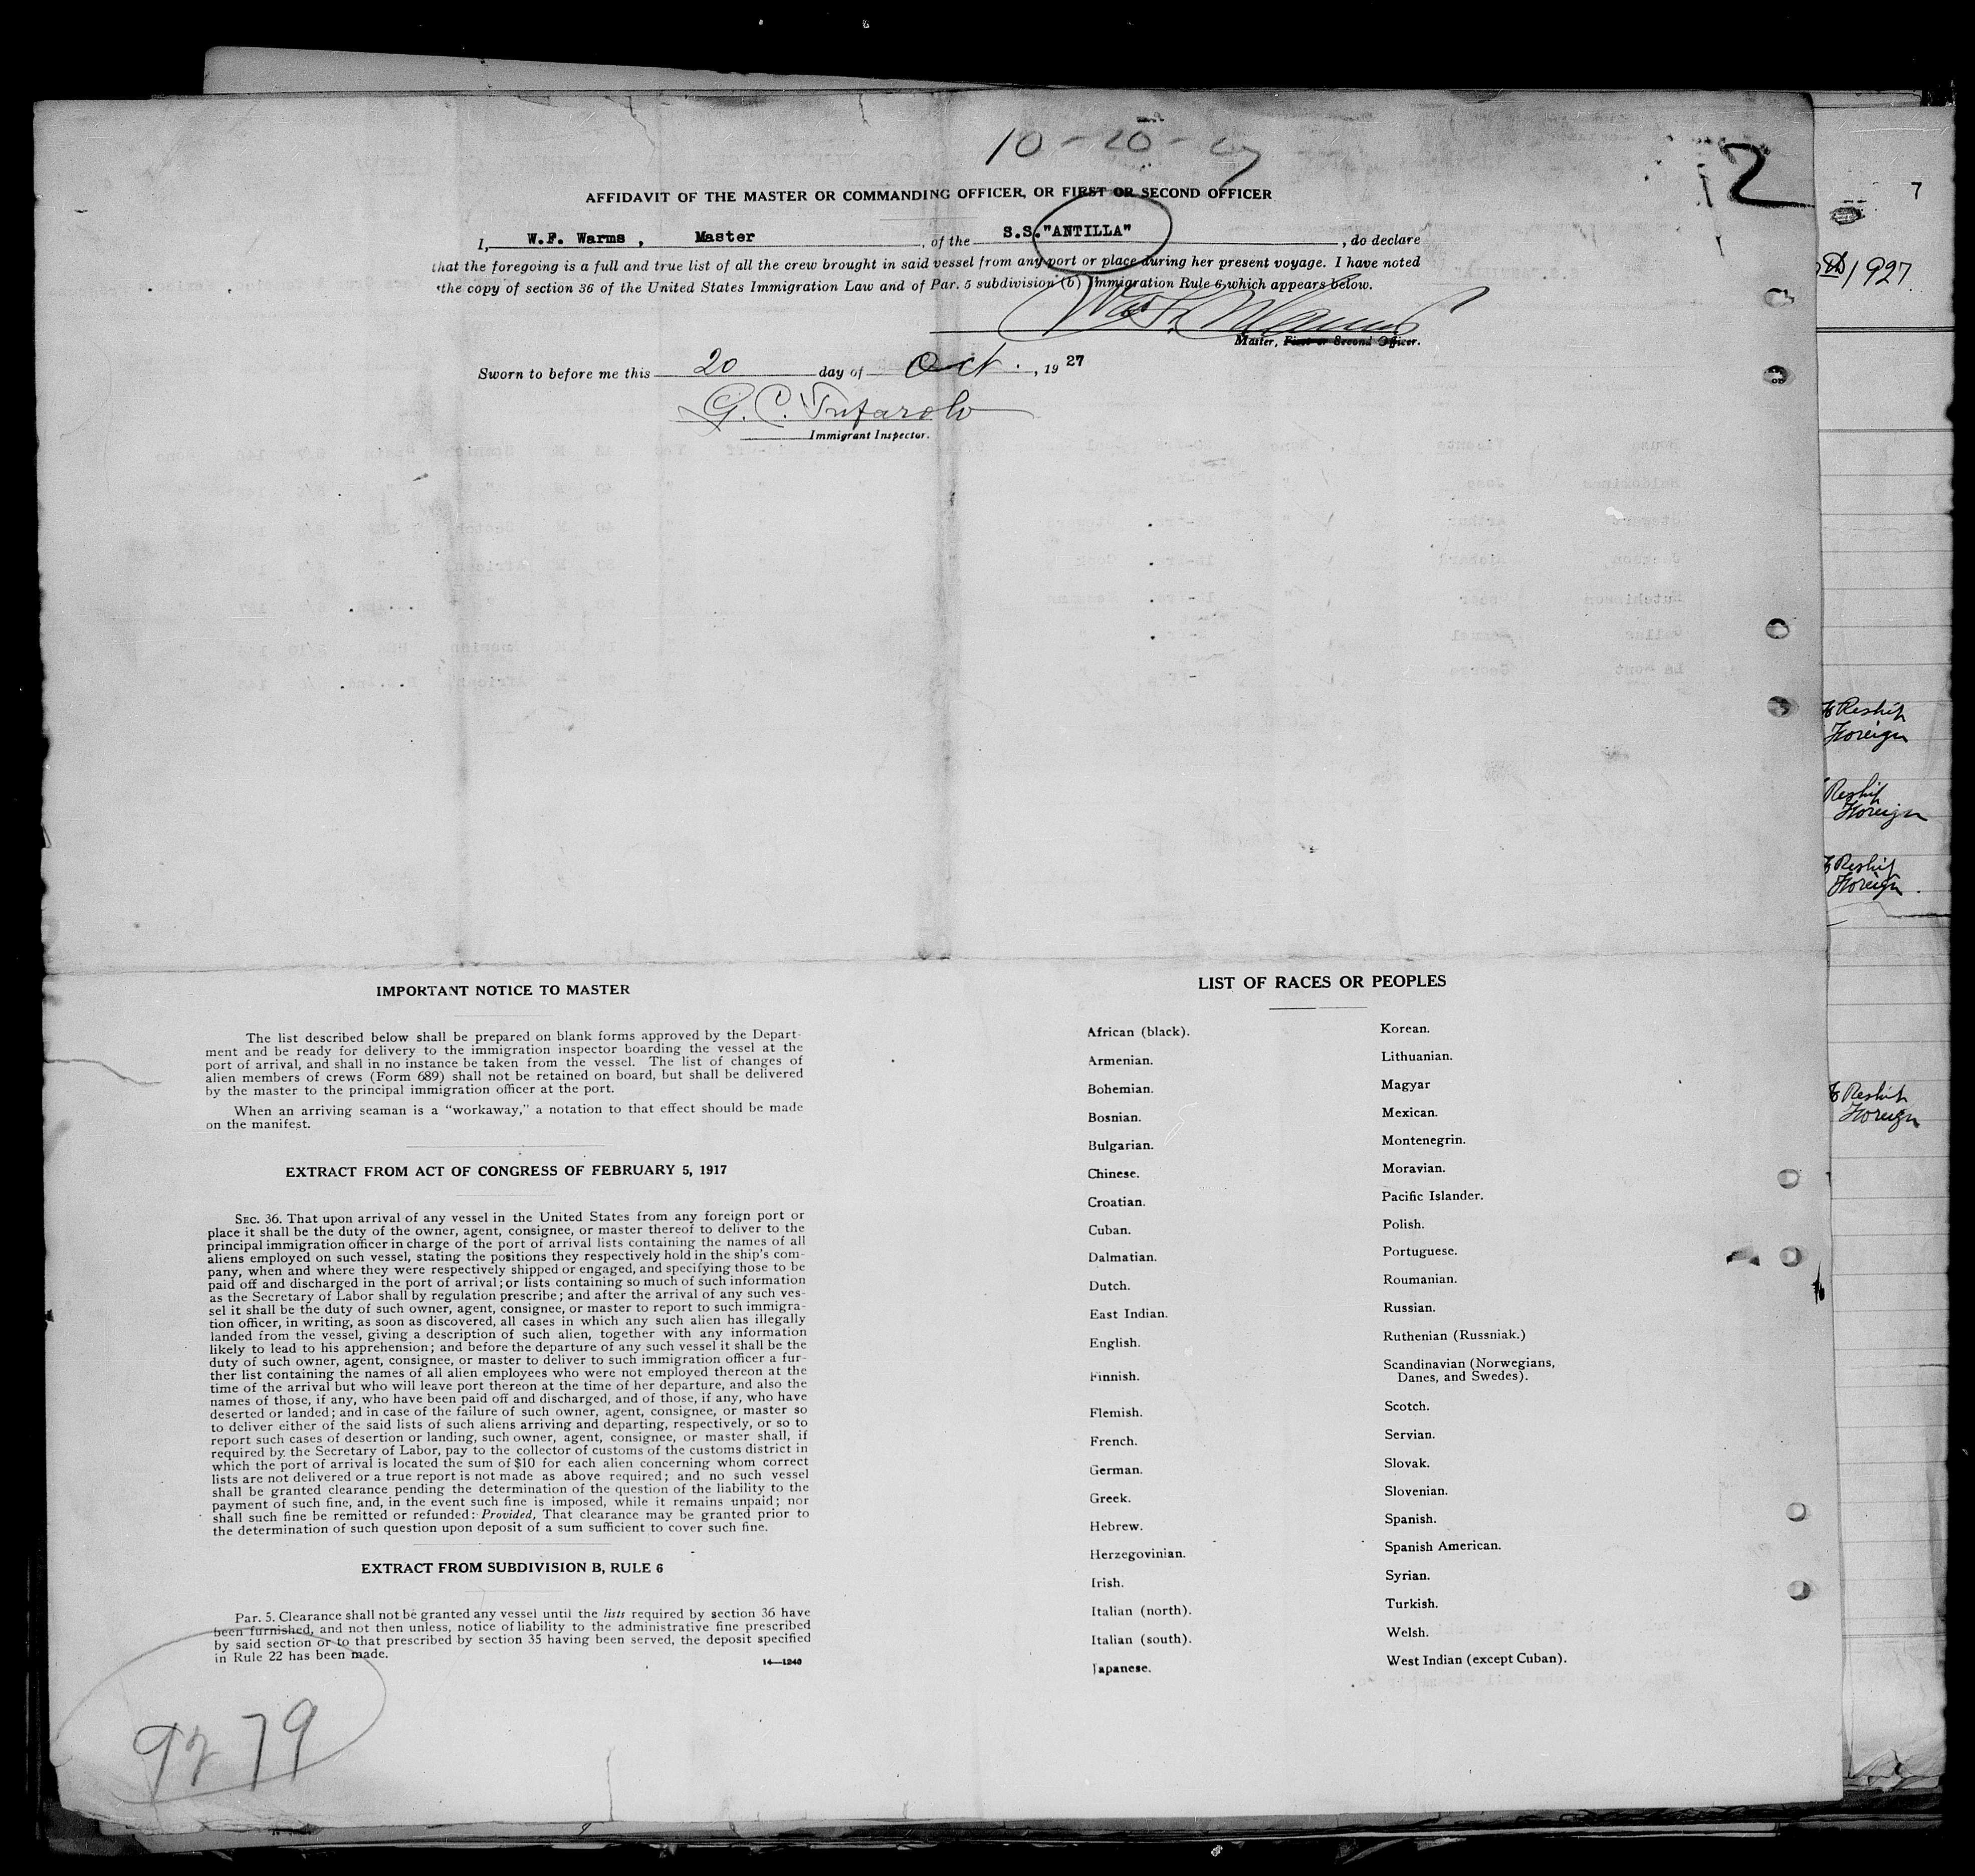 10-20-27
2
AFFIDAVIT OF THE MASTER OR COMMANDING OFFICER, OR FIRST OR SECOND OFFICER
I, W.F. Warms, Master, of the S.S. "ANTILLA", do declare
that the foregoing is a full and true list of all the crew brought in said vessel from any port or place during her present voyage. I have noted
the copy of section 36 of the United States Immigration Law and of Par. 5 subdivision (b) Immigration Rule 6 which appears below.
Master, First or Second Officer.
Sworn to before me this 20 day of Oct., 1927
Immigrant Inspector.
IMPORTANT NOTICE TO MASTER
The list described below shall be prepared on blank forms approved by the Depart-
ment and be ready for delivery to the immigration inspector boarding the vessel at the
port of arrival, and shall in no instance be taken from the vessel. The list of changes of
alien members of crews (Form 689) shall not be retained on board, but shall be delivered
by the master to the principal immigration officer at the port.
When an arriving seaman is a “workaway,” a notation to that effect should be made
on the manifest.
EXTRACT FROM ACT OF CONGRESS OF FEBRUARY 5, 1917
SEC. 36. That upon arrival of any vessel in the United States from any foreign port or
place it shall be the duty of the owner, agent, consignee, or master thereof to deliver to the
principal immigration officer in charge of the port of arrival lists containing the names of all
aliens employed on such vessel, stating the positions they respectively hold in the ship's com-
pany, when and where they were respectively shipped or engaged, and specifying those to be
paid off and discharged in the port of arrival; or lists containing so much of such information
as the Secretary of Labor shall by regulation prescribe; and after the arrival of any such ves-
sel it shall be the duty of such owner, agent, consignee, or master to report to such immigra-
tion officer, in writing, as soon as discovered, all cases in which any such alien has illegally
landed from the vessel, giving a description of such alien, together with any information
likely to lead to his apprehension; and before the departure of any such vessel it shall be the
duty of such owner, agent, consignee, or master to deliver to such immigration officer a fur-
ther list containing the names of all alien employees who were not employed thereon at the
time of the arrival but who will leave port thereon at the time of her departure, and also the
names of those, if any, who have been paid off and discharged, and of those, if any, who have
deserted or landed; and in case of the failure of such owner, agent, consignee, or master so
to deliver either of the said lists of such aliens arriving and departing, respectively, or so to
report such cases of desertion or landing, such owner, agent, consignee, or master shall, if
required by the Secretary of Labor, pay to the collector of customs of the customs district in
which the port of arrival is located the sum of $10 for each alien concerning whom correct
lists are not delivered or a true report is not made as above required; and no such vessel
shall be granted clearance pending the determination of the question of the liability to the
payment of such fine, and, in the event such fine is imposed, while it remains unpaid; nor
shall such fine be remitted or refunded: Provided, That clearance may be granted prior to
the determination of such question upon deposit of a sum sufficient to cover such fine.
EXTRACT FROM SUBDIVISION B, RULE 6
Par. 5. Clearance shall not be granted any vessel until the lists required by section 36 have
been furnished, and not then unless, notice of liability to the administrative fine prescribed
by said section or to that prescribed by section 35 having been served, the deposit specified
in Rule 22 has been made.
14—1240
9279
LIST OF RACES OR PEOPLES
African (black).
Armenian.
Bohemian.
Bosnian.
Bulgarian.
Chinese.
Croatian.
Cuban.
Dalmatian.
Dutch.
East Indian.
English.
Finnish.
Flemish.
French.
German.
Greek.
Hebrew.
Herzegovinian.
Irish.
Italian (north).
Italian (south).
Japanese.
Korean.
Lithuanian.
Magyar
Mexican.
Montenegrin.
Moravian.
Pacific Islander.
Polish.
Portuguese.
Roumanian.
Russian.
Ruthenian (Russniak.)
Scandinavian (Norwegians,
Danes, and Swedes).
Scotch.
Servian.
Slovak.
Slovenian.
Spanish.
Spanish American.
Syrian.
Turkish.
Welsh.
West Indian (except Cuban).
7
1927.
Reship
Foreign
Reship
Foreign
Reship
Foreign.
Reship
Foreign